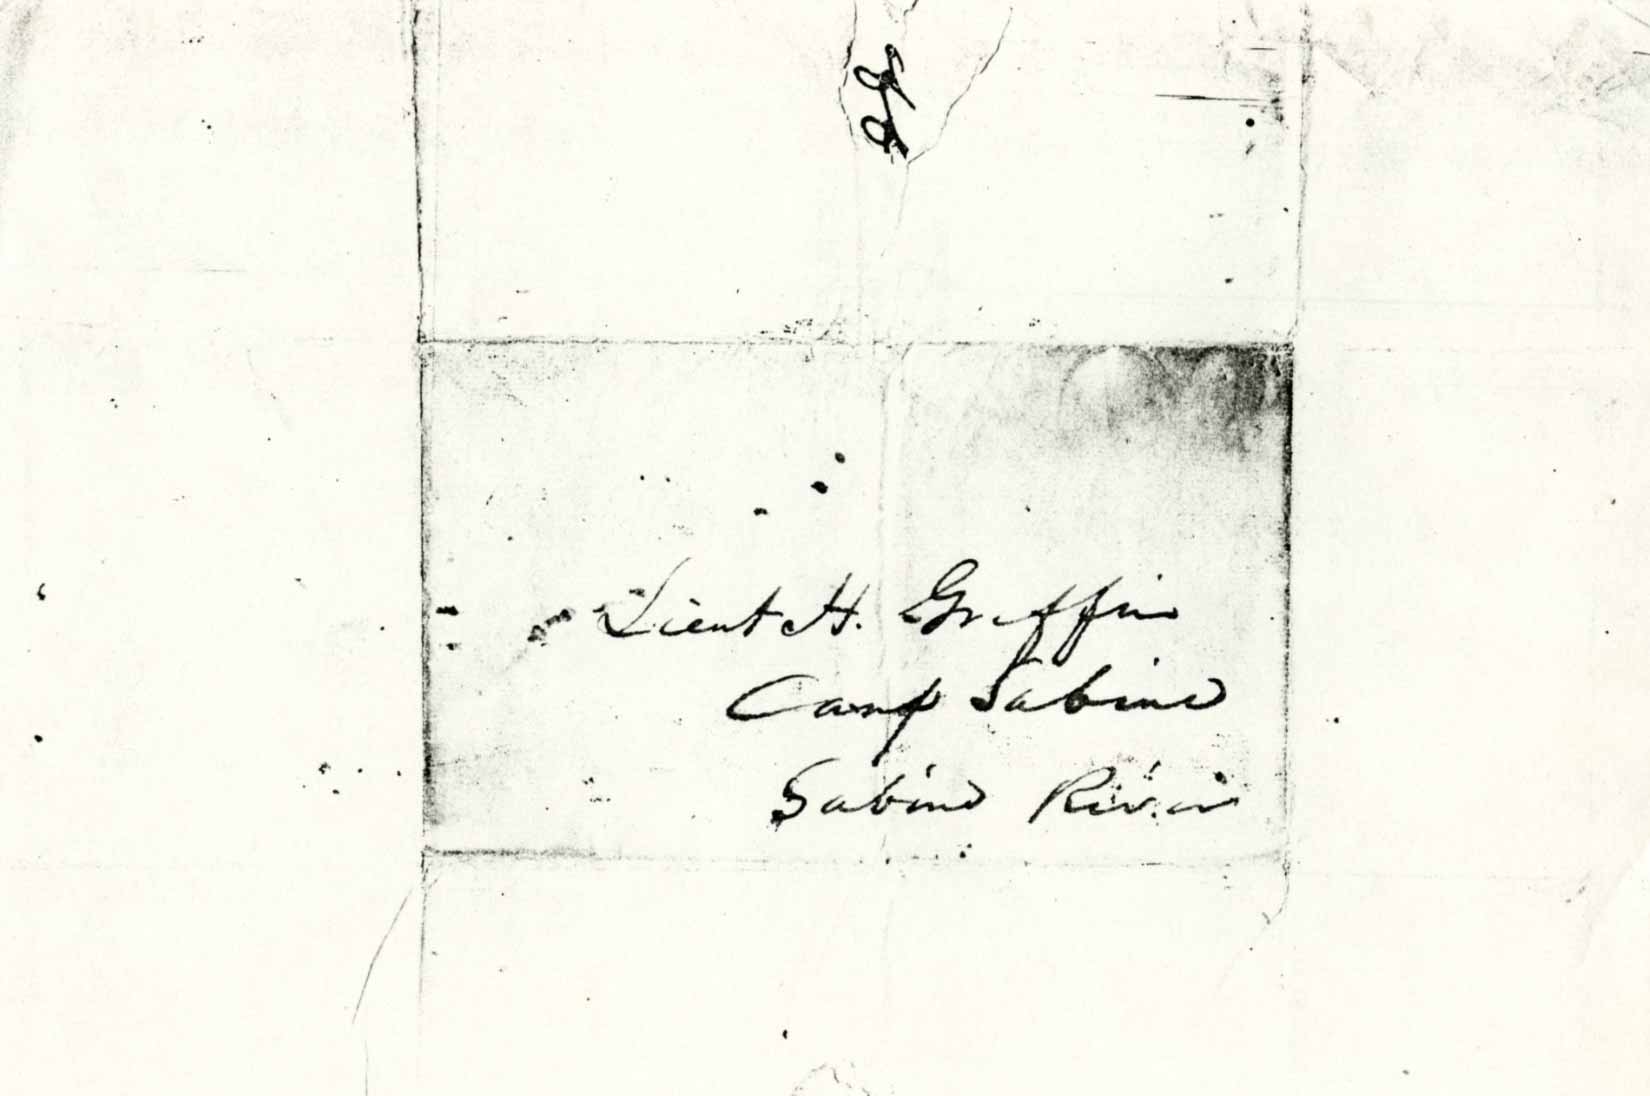 Lieut H. Griffin
Camp Sabine
Sabine River